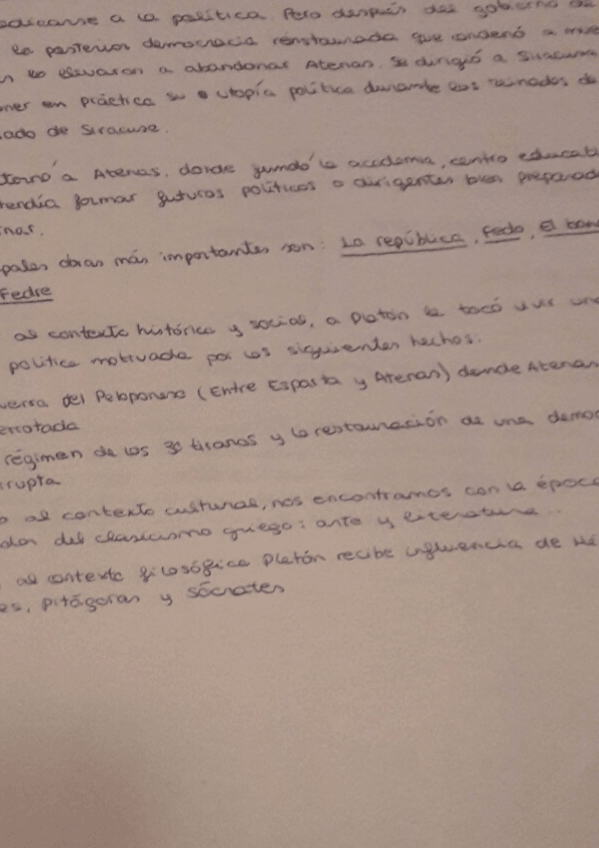 edicarse a la política. Pero después del gobierno de
la posterior democracia renstaurada que condenó a mue
lo llevaron a abandonar Atenas. Se dirigió a Siracusa
oner en práctica su utopía política durante los reinados de
ado de Siracusa.
tornó a Atenas, donde fundó la academia, centro educati
tendía formar futuros políticos o dirigentes bien preparad
nar.
pales obras más importantes son: La república, Fedo, El ban
Fedre
al contexto histórico y social, a Platón le tocó vivir una
política motivada por los siguientes hechos:
uerra del Peloponeso (Entre Esparta y Atenas) donde Atenas
errotada
régimen de los 30 tiranos y la restauración de una democ
rrupta
o al contexto cultural, nos encontramos con la época
dor del clasicismo griego: arte y literatura...
al contexto filosófico Platón recibe influencia de He
es, Pitágoras y Sócrates